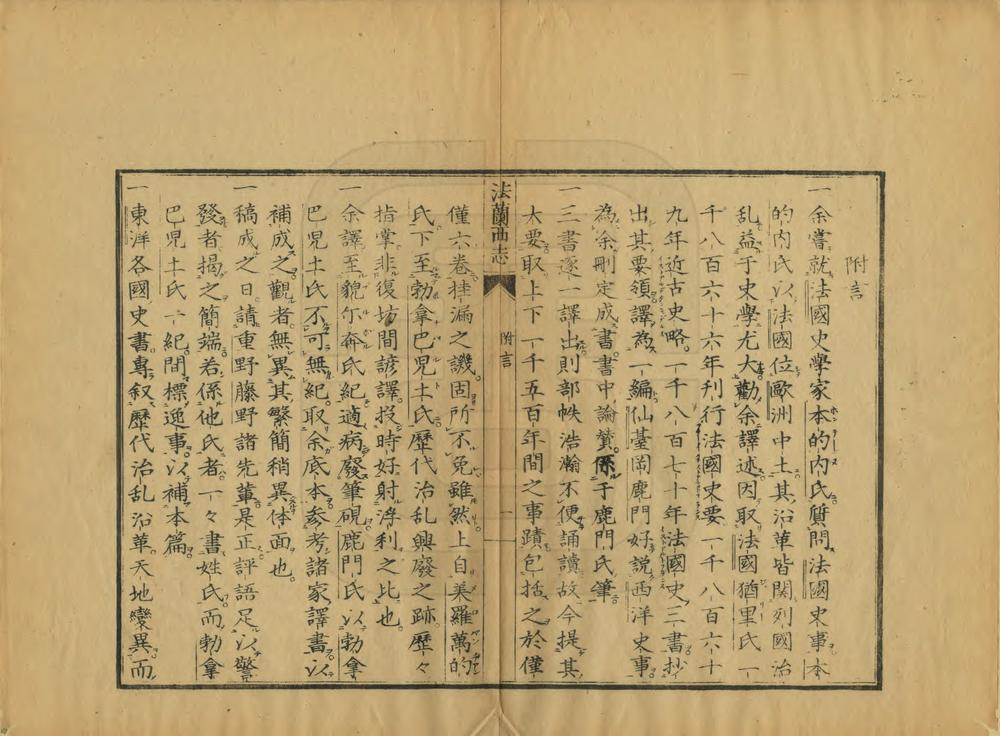 附言
一余嘗就法國史學家本的內氏質問法國史事本
的內氏以法國位歐洲中土其沿革皆關列國治
乱益于史學尤大勸余譯述因取法國猶里氏一
千八百六十六年刊行法國史要一千八百六十
九年近古史略一千八百七十年法國史三書抄
出其要領譯為一編仙臺岡鹿門好說西洋史事
為余刪定成書書中論贊係于鹿門氏筆
一三書逐一譯出則部帙浩瀚不便誦讀故今提其
大要取上下一千五百年間之事蹟包括之於僅
法蘭西志
附言
一
僅六卷掛漏之譏固所不免雖然上自美羅萬的
氏下至勃拿巴兒土氏歷代治乱興廢之跡歷々
指掌非復坊間諺譯投時好射浮利之比也
一余譯至貌尓奔氏紀適病廢筆硯鹿門氏以勃拿
巴兒土氏不可無紀取余底本參考諸家譯書以
補成之觀者無異其繁簡稍異体面也
一稿成之日請重野藤野諸先輩是正評語足以警
發者揭之簡端若係他氏者一々書姓氏而勃拿
巴兒土氏一紀間標逸事以補本篇
一東洋各國史書專叙歷代治乱沿革天地變異而